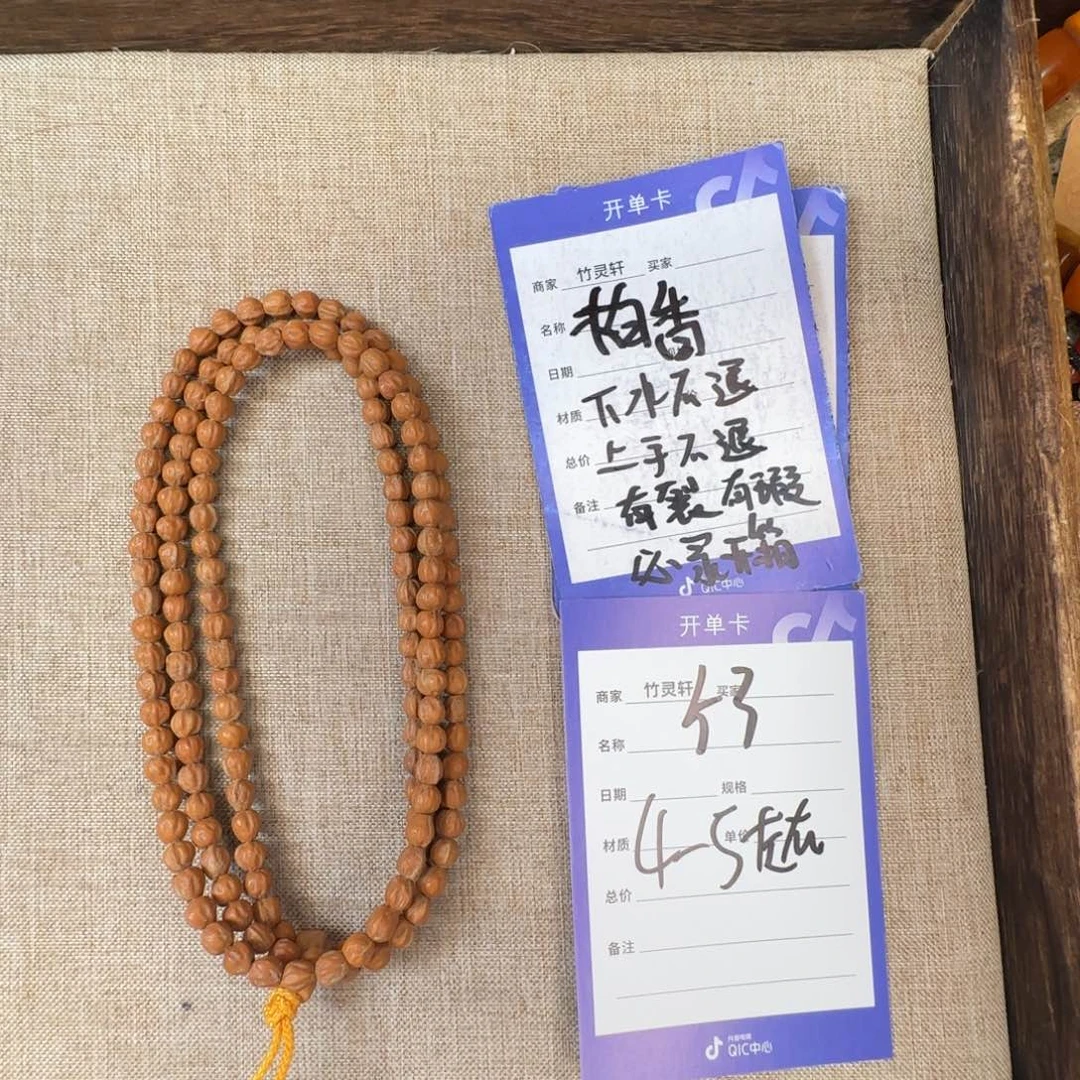 开单卡
商家 竹灵轩 买家
名称 柏香
日期
材质 下水不退
总价 上手不退
备注 有裂有瑕
必录开箱
QIC中心
开单卡
商家 竹灵轩 买家
名称
日期 规格
材质 4-5左右 单价
总价
备注
抖音电商
QIC中心